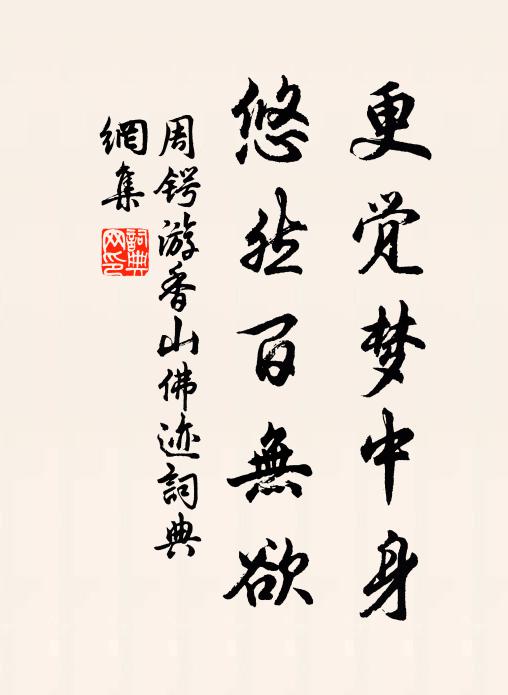 更觉梦中身
悠然百無欲
周锷游香山佛迹詞典
網集
詞典
网印